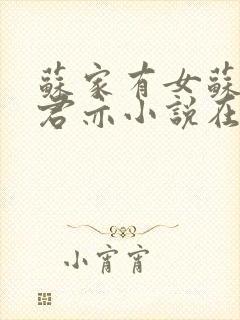 蘇家有女蘇
君亦小説在
小宵宵